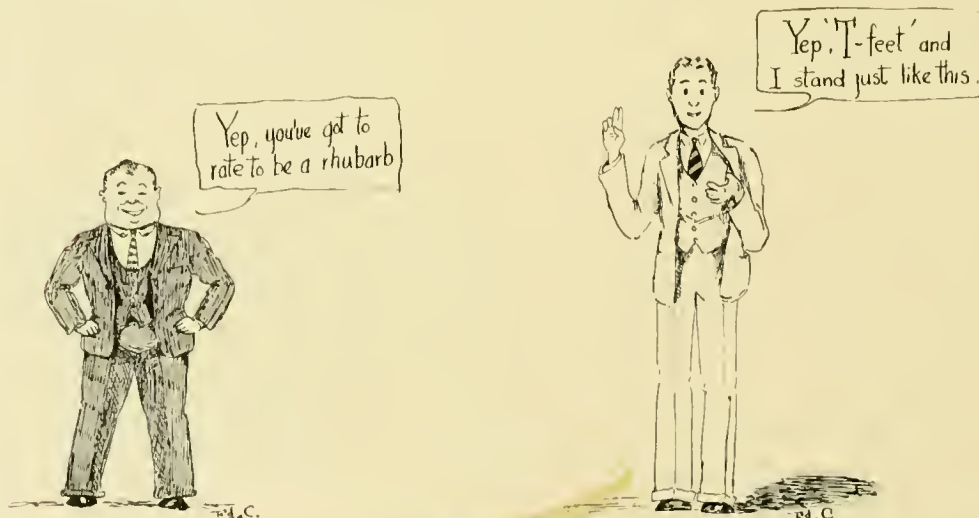 Yep, you've got to
rate to be a rhubarb
Yep, 'T-feet' and
I stand just like this.
Ed. C.
Ed. C